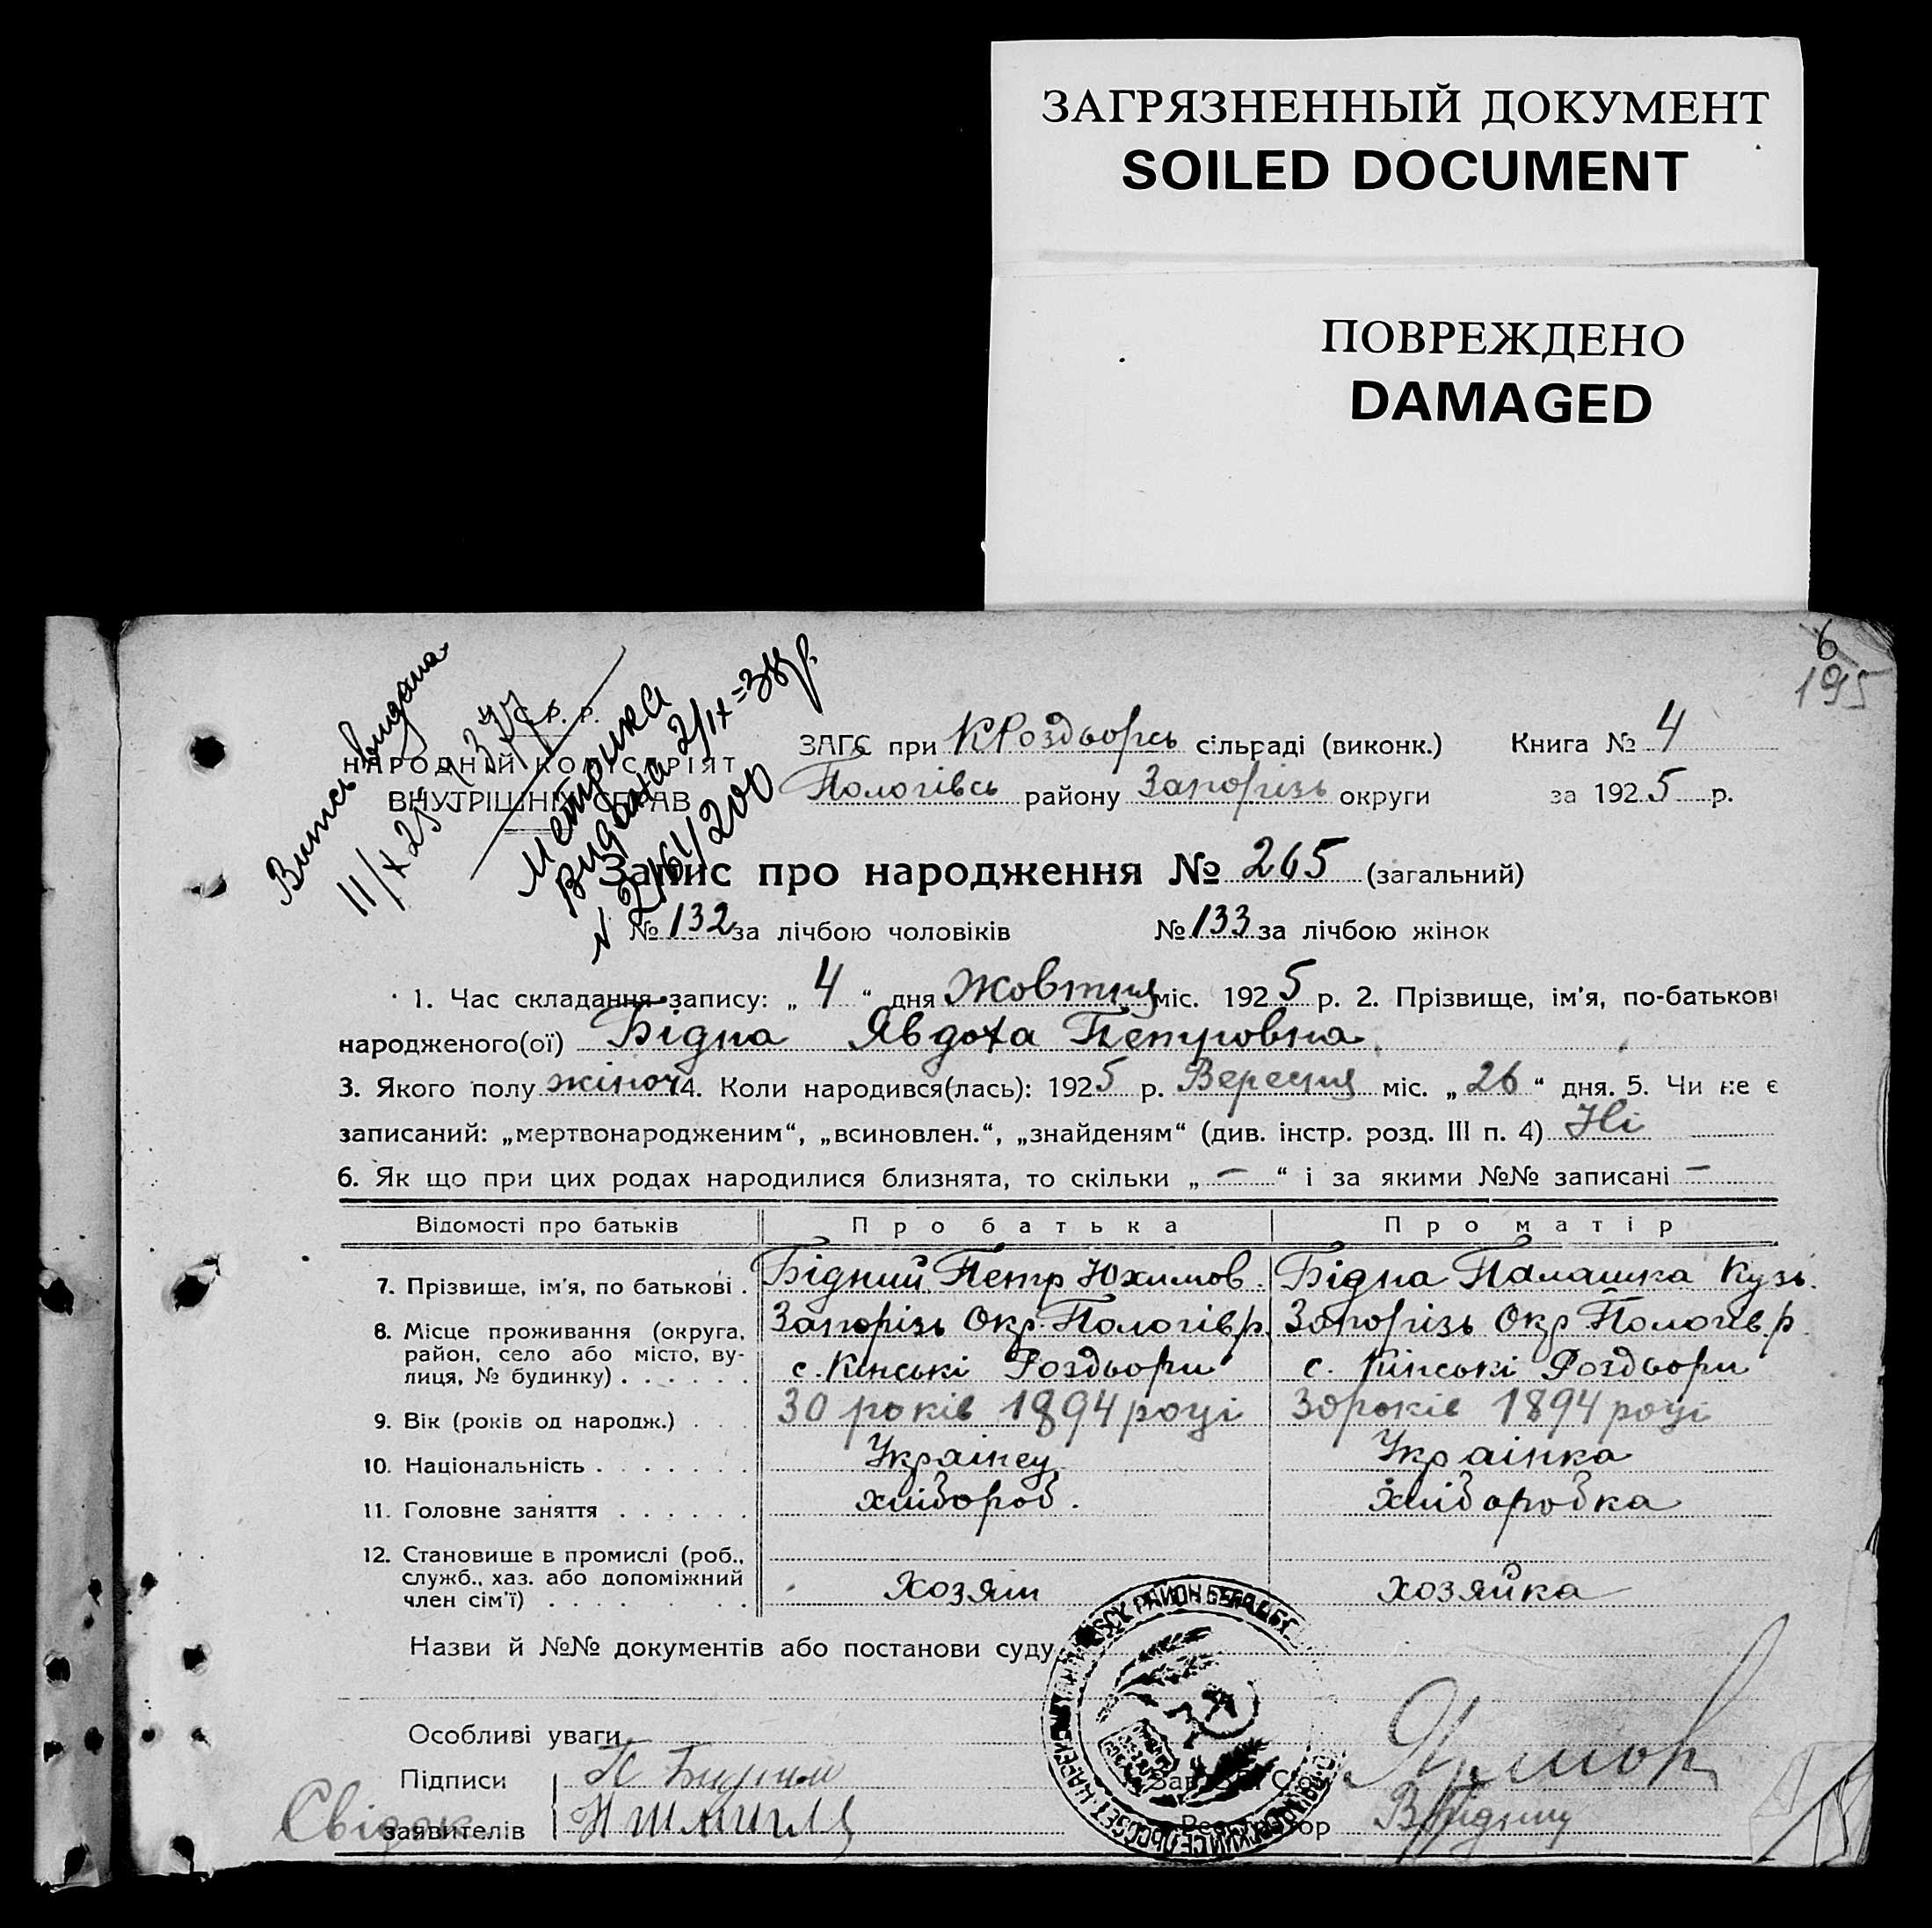 ЗАГРЯЗНЕННЫЙ ДОКУМЕНТ
SOILED DOCUMENT
ПОВРЕЖДЕНО
DAMAGED
6
195
Витись видана
11/X 25
Метрика
Видана 2/IX=38р.
N 2/161/200
У.С.Р.Р.
НАРОДНІЙ КОМІСАРІЯТ
ВНУТРІШНІХ СПРАВ
ЗАГС при КРоздьорсь сільраді (виконк.) Книга № 4
Пологівсь району Запорізь округи за 1925 р.
Запис про народження № 265 (загальний)
№ 132 за лічбою чоловіків № 133 за лічбою жінок
1. Час складання запису: „ 4 “ дня Жовтня міс. 1925 р. 2. Прізвище, ім'я, по-батькові
народженого(ої) Бідна Явдоха Петровна
3. Якого полу жіноч 4. Коли народився(лась): 1925 р. Вересня міс. „ 26 “ дня. 5. Чи не є
записаний: „мертвонародженим“, „всиновлен.“, „знайденям“ (див. інстр. розд. III п. 4) Ні
6. Як що при цих родах народилися близнята, то скільки „ — “ і за якими №№ записані —
Відомості про батьків Про батька Про матір
7. Прізвище, ім'я, по батькові . Бідний Петр Юхимов. Бідна Палашка Кузь.
8. Місце проживання (округа, Запорізь Окр. Пологів.р. Запорізь Окр Пологів.р.
район, село або місто, ву-
лиця, № будинку) . . . . . . с. Кінські Роздьори с. Кінські Роздьори
9. Вік (років од народж.) . . . 30 років 1894 році 30 років 1894 році
10. Національність . . . . . . . Українец Українка
11. Головне заняття . . . . . . хлібороб. хліборобка
12. Становище в промислі (роб.,
служб., хаз. або допоміжний
член сім'ї) . . . . . . . . Хозяін хозяйка
Назви й №№ документів або постанови суду
Особливі уваги
Підписи
заявителів
Свідок
Зав. ЗАГСом
Регистратор